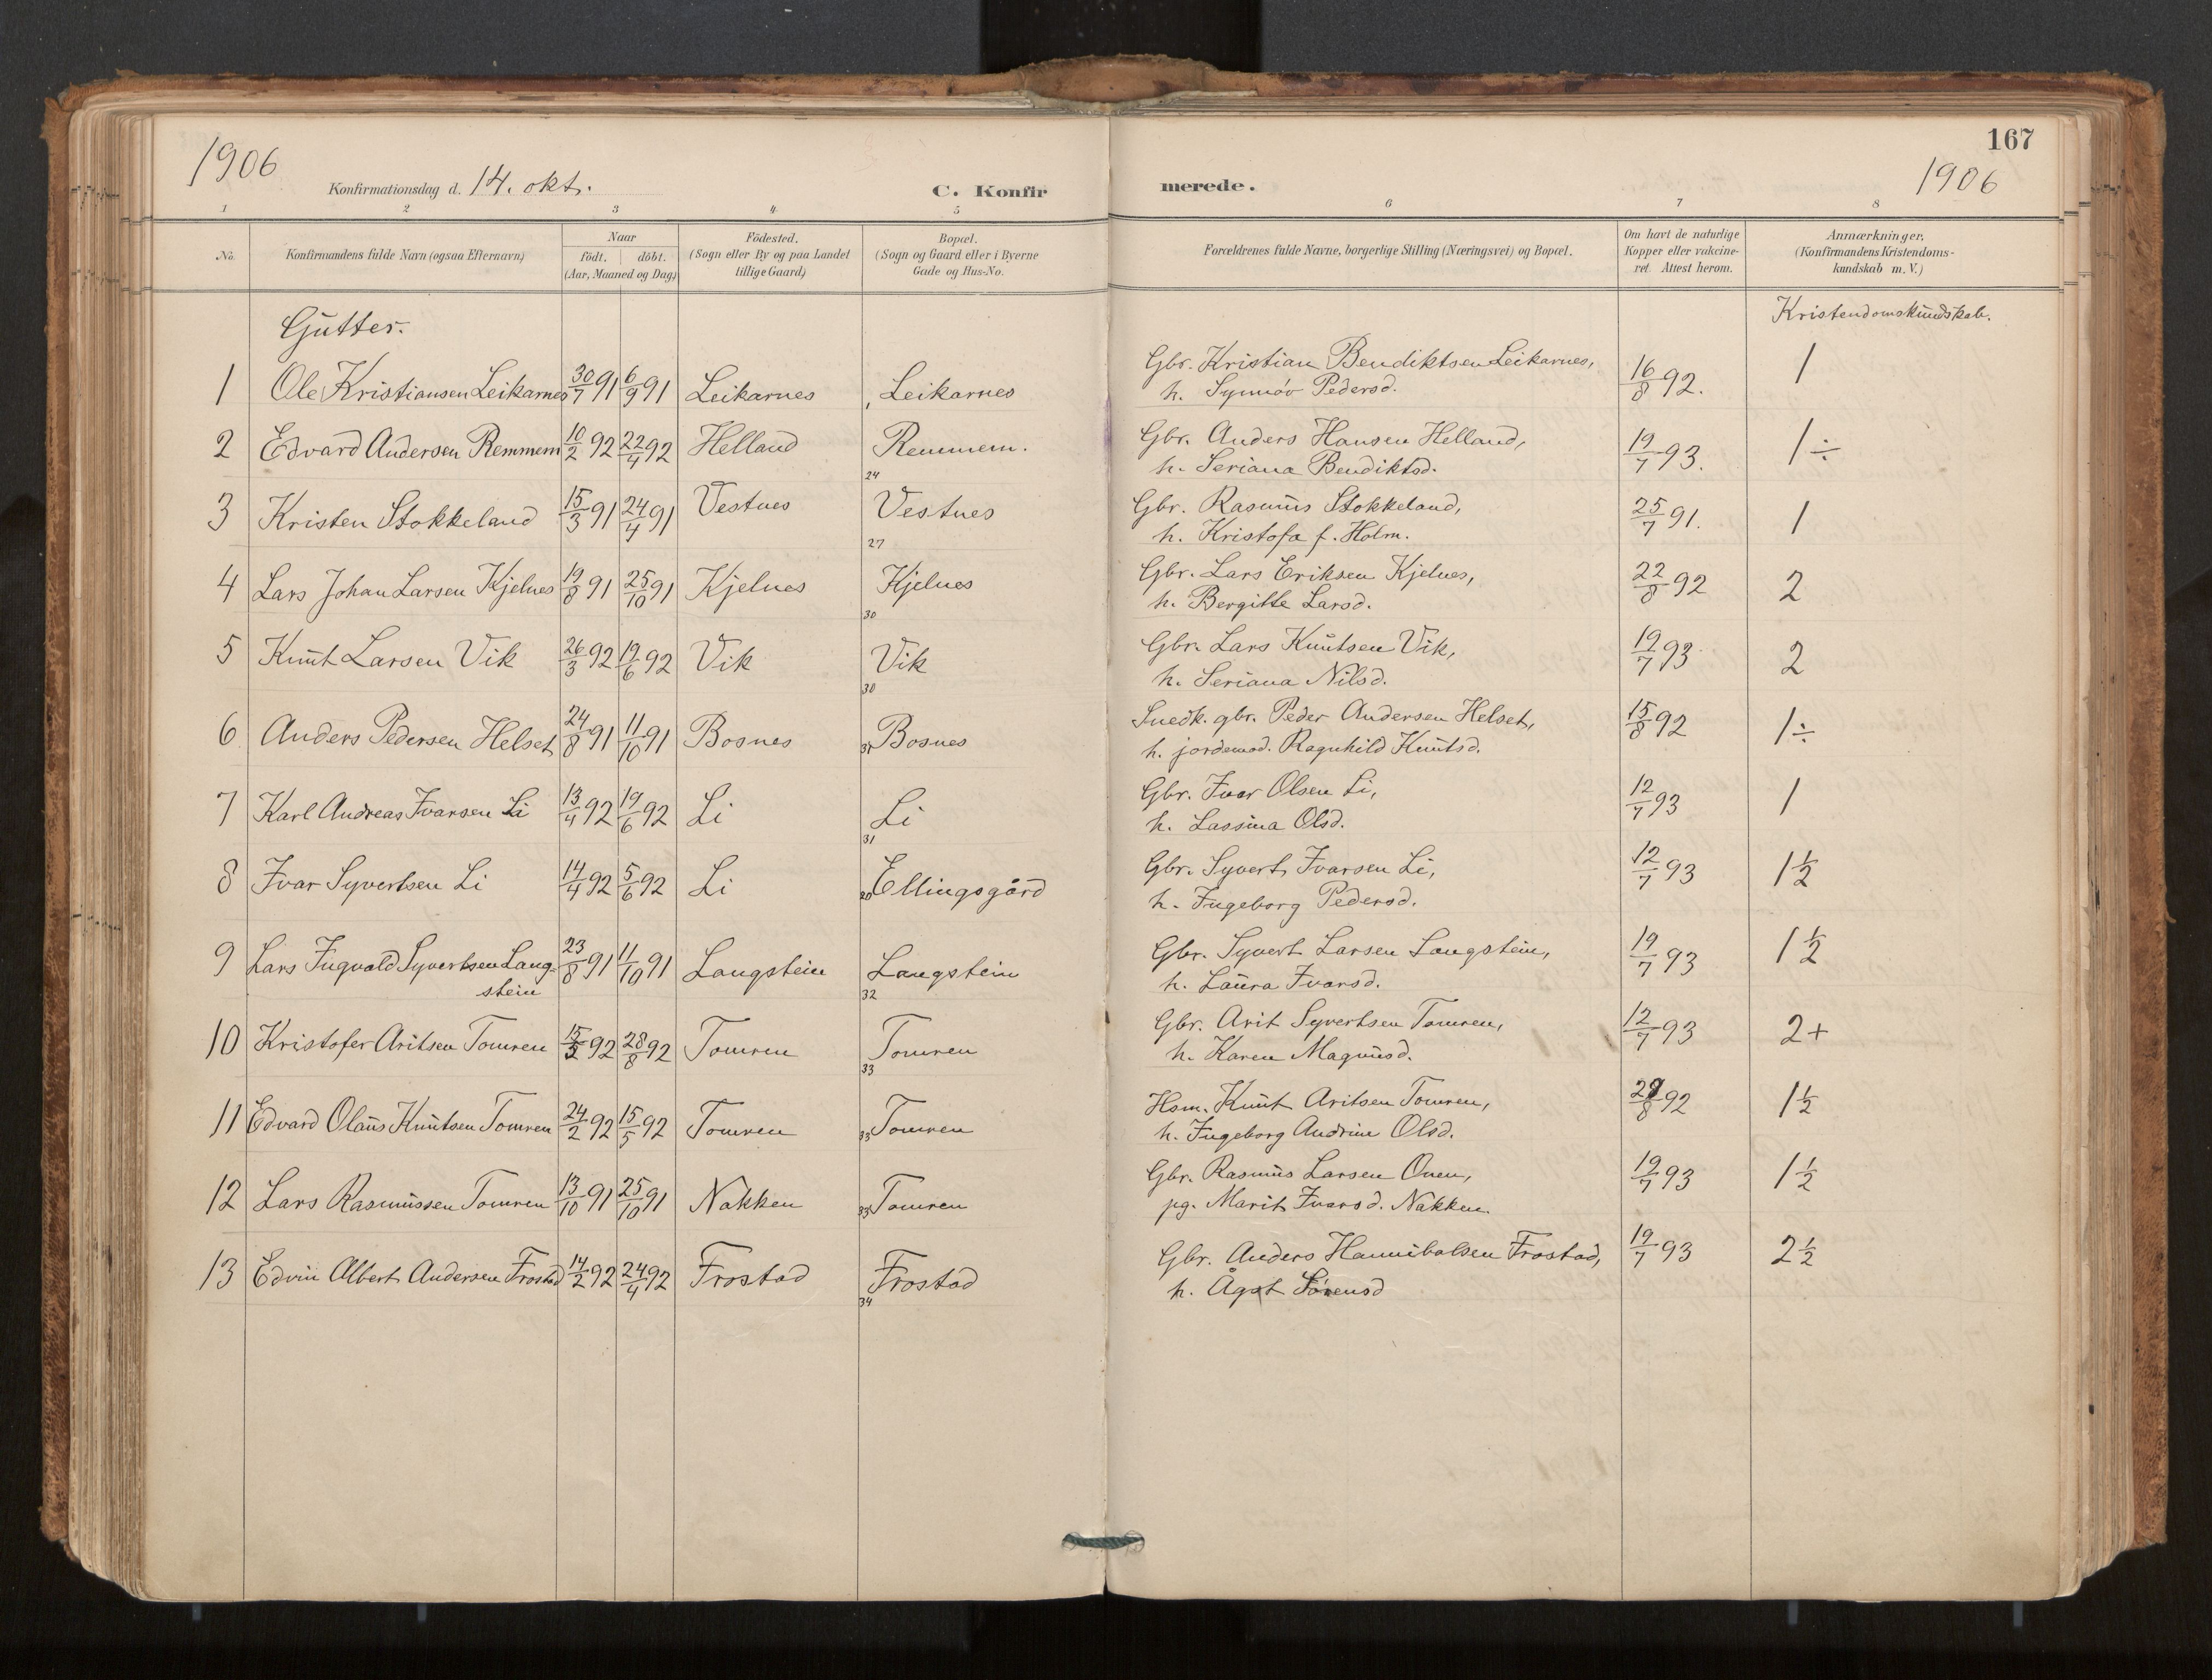 167
1906
1906
Konfirmationsdag d. 14. okt.
C. Konfirmerede.
1 2 3 4 5 6 7 8
No. Konfirmandens fulde Navn (ogsaa Efternavn) Naar födt. döbt. (Aar, Maaned og Dag) Födested. (Sogn eller By og paa Landet tillige Gaard) Bopæl. (Sogn og Gaard eller i Byerne Gade og Hus-No. Forældrenes fulde Navne, borgerlige Stilling (Næringsvei) og Bopæl. Om havt de naturlige Kopper eller vakcineret. Attest herom. Anmærkninger. (Konfirmandens Kristendomskundskab m. V.)
Gutter. Kristendomskundskab.
1 Ole Kristiansen Leikarnes 30/7 91 6/9 91 Leikarnes Leikarnes Gbr. Kristian Bendiktsen Leikarnes, 16/8 92. 1
h. Synnöv Pedersd.
2 Edvard Andersen Remmem 10/2 92 22/4 92 Helland Remmem. 24 Gbr. Anders Hansen Helland, 19/7 93. 1 ÷
h. Seriana Bendiktsd.
3 Kristen Stokkeland 15/3 91 24/4 91 Vestnes Vestnes 27 Gbr. Rasmus Stokkeland, 25/7 91. 1
h. Kristofa f. Holm.
4 Lars Johan Larsen Kjelnes 19/8 91 25/10 91 Kjelnes Kjelnes 30 Gbr. Lars Eriksen Kjelnes, 22/8 92 2
h. Bergitte Larsd.
5 Knut Larsen Vik 26/3 92 19/6 92 Vik Vik 30 Gbr. Lars Knutsen Vik, 19/7 93 2
h. Seriana Nilsd.
6 Anders Pedersen Helset 24/8 91 11/10 91 Bosnes 31 Bosnes Snedk. gbr. Peder Andersen Helset, 15/8 92 1 ÷
h. jordemod. Ragnhild Knutsd.
7 Karl Andreas Ivarsen Li 13/4 92 19/6 92 Li Li 31 Gbr. Ivar Olsen Li, 12/7 93 1
h. Lassina Olsd.
8 Ivar Syvertsen Li 14/4 92 5/6 92 Li 20 Ellingsgård Gbr. Syvert Ivarsen Li, 12/7 93 1 1/2
h. Ingeborg Pedersd.
9 Lars Ingvald Syvertsen Lang=
stein 23/8 91 11/10 91 Langstein Langstein 32 Gbr. Syvert Larsen Langstein, 19/7 93 1 1/2
h. Laura Ivarsd.
10 Kristofer Aritsen Tomren 15/5 92 28/8 92 Tomren Tomren 33 Gbr. Arit Syvertsen Tomren, 12/7 93 2+
h. Karen Magnusd.
11 Edvard Olaus Knutsen Tomren 24/2 92 15/5 92 Tomren 33 Tomren Hsm. Knut Aritsen Tomren, /8 92 1 1/2
h. Ingeborg Andrine Olsd.
12 Lars Rasmussen Tomren 13/10 91 25/10 91 Nakken 33 Tomren Gbr. Rasmus Larsen Oven, 19/7 93 1 1/2
pg. Marit Ivarsd. Nakken.
13 Edvin Albert Andersen Frostad 14/2 92 24/4 92 Frostad Frostad 34 Gbr. Anders Hannibalsen Frostad, 19/7 93 2 1/2
h. Ågot Sörensd